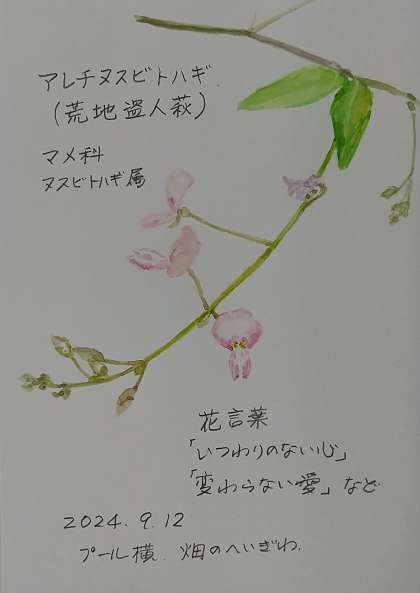 アレチヌスビトハギ.
(荒地盗人萩)
マメ科
ヌスビトハギ属
花言葉
「いつわりのない心」
「変わらない愛」など
2024.9.12
プール横. 畑のへいぎわ.